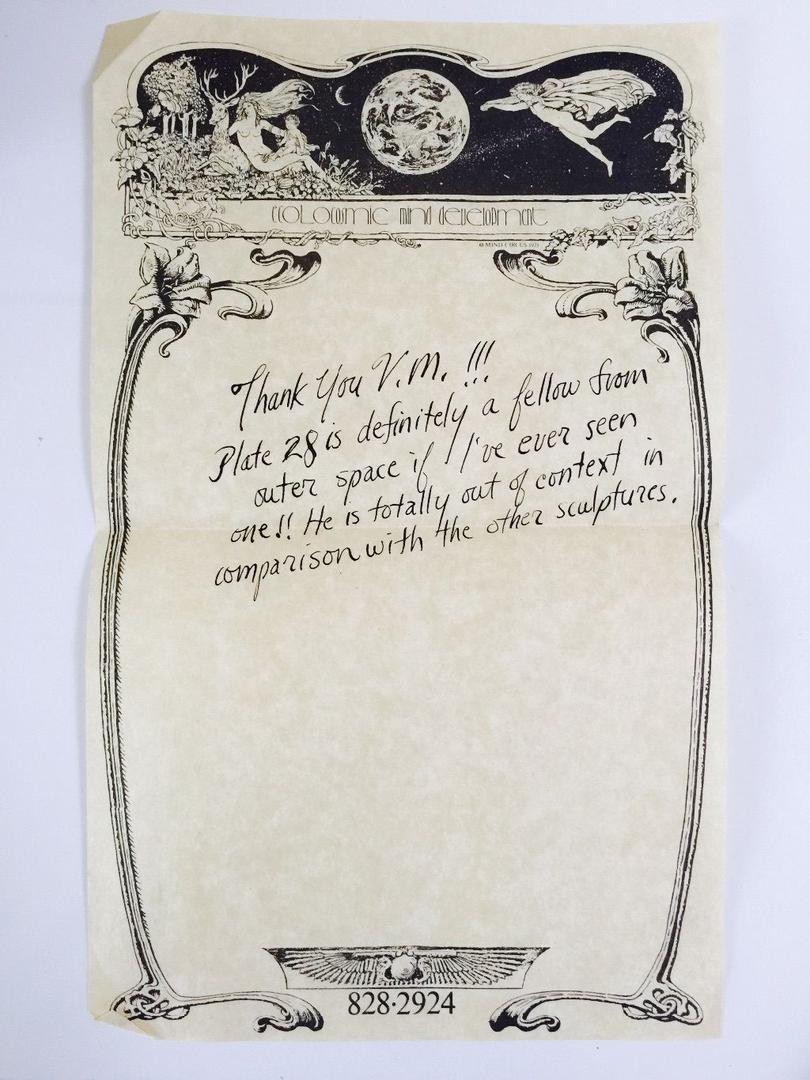 ecolocosmic mind development
© MIND CIRCUS 1971
Thank You V.M. !!!
Plate 28 is definitely a fellow from
outer space if I've ever seen
one!! He is totally out of context in
comparison with the other sculptures.
828·2924